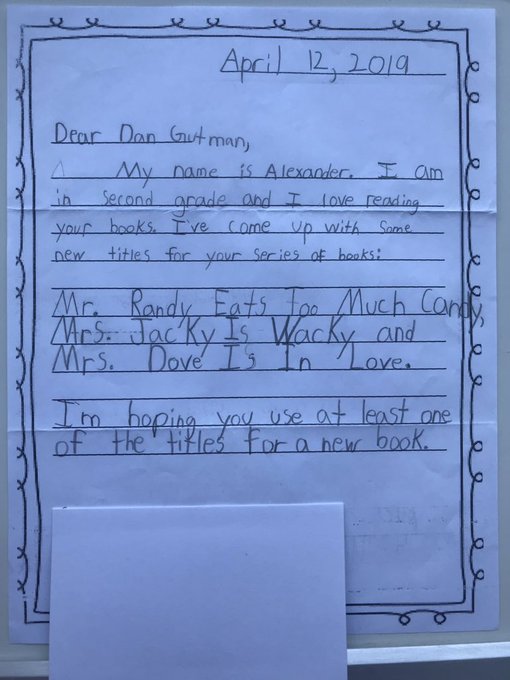 April 12, 2019
Dear Dan Gutman,
My name is Alexander. I am
in second grade and I love reading
your books. I've come up with some
new titles for your series of books:
Mr. Randy Eats Too Much Candy,
Mrs. Jacky Is Wacky and
Mrs. Dove Is In Love.
I'm hoping you use at least one
of the titles for a new book.